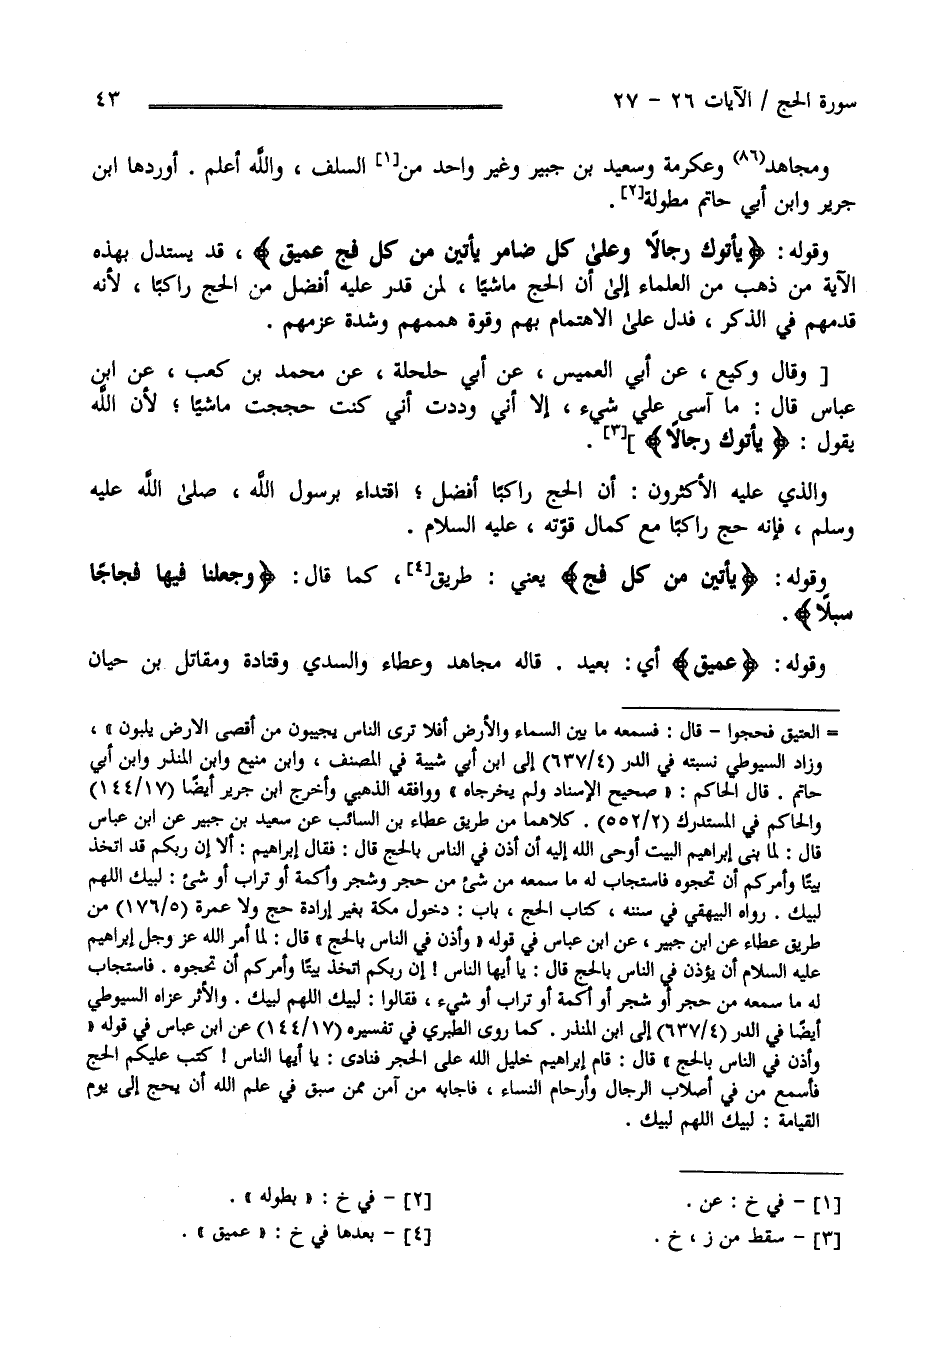 سورة الحج / الآيات ٢٦ – ٢٧ ٤٣
ومجاهد(٨٦) وعكرمة وسعيد بن جبير وغير واحد من[١] السلف ، واللَّه أعلم . أوردها ابن
جرير وابن أبي حاتم مطولة[٢] .
وقوله : ﴿ يأتوك رجالًا وعلىٰ كل ضامر يأتين من كل فج عميق ﴾ ، قد يستدل بهذه
الآية من ذهب من العلماء إلىٰ أن الحج ماشيًا ، لمن قدر عليه أفضل من الحج راكبًا ، لأنه
قدمهم في الذكر ، فدل علىٰ الاهتمام بهم وقوة هممهم وشدة عزمهم .
[ وقال وكيع ، عن أبي العميس ، عن أبي حلحلة ، عن محمد بن كعب ، عن ابن
عباس قال : ما آسى علي شيء ، إلا أني وددت أني كنت حججت ماشيًا ؛ لأن اللَّه
يقول : ﴿ يأتوك رجالًا ﴾ ][٣] .
والذي عليه الأكثرون : أن الحج راكبًا أفضل ؛ اقتداء برسول اللَّه ، صلىٰ اللَّه عليه
وسلم ، فإنه حج راكبًا مع كمال قوّته ، عليه السلام .
وقوله : ﴿ يأتين من كل فج ﴾ يعني : طريق[٤] ، كما قال : ﴿ وجعلنا فيها فجاجًا
سبلًا ﴾ .
وقوله : ﴿ عميق ﴾ أي : بعيد . قاله مجاهد وعطاء والسدي وقتادة ومقاتل بن حيان
= العتيق فحجوا – قال : فسمعه ما بين السماء والأرض أفلا ترى الناس يجيبون من أقصى الارض يلبون » ،
وزاد السيوطي نسبته في الدر (٦٣٧/٤) إلى ابن أبي شيبة في المصنف ، وابن منيع وابن المنذر وابن أبي
حاتم . قال الحاكم : « صحيح الإسناد ولم يخرجاه » ووافقه الذهبي وأخرج ابن جرير أيضًا (١٤٤/١٧)
والحاكم في المستدرك (٥٥٢/٢) . كلاهما من طريق عطاء بن السائب عن سعيد بن جبير عن ابن عباس
قال : لما بنى إبراهيم البيت أوحى الله إليه أن أذن في الناس بالحج قال : فقال إبراهيم : ألا إن ربكم قد اتخذ
بيتًا وأمركم أن تحجوه فاستجاب له ما سمعه من شئ من حجر وشجر وأكمة أو تراب أو شئ : لبيك اللهم
لبيك . رواه البيهقي في سننه ، كتاب الحج ، باب : دخول مكة بغير إرادة حج ولا عمرة (١٧٦/٥) من
طريق عطاء عن ابن جبير ، عن ابن عباس في قوله « وأذن في الناس بالحج » قال : لما أمر الله عز وجل إبراهيم
عليه السلام أن يؤذن في الناس بالحج قال : يا أيها الناس ! إن ربكم اتخذ بيتًا وأمركم أن تحجوه . فاستجاب
له ما سمعه من حجر أو شجر أو أكمة أو تراب أو شيء ، فقالوا : لبيك اللهم لبيك . والأثر عزاه السيوطي
أيضًا في الدر (٦٣٧/٤) إلى ابن المنذر . كما روى الطبري في تفسيره (١٤٤/١٧) عن ابن عباس في قوله «
وأذن في الناس بالحج » قال : قام إبراهيم خليل الله على الحجر فنادى : يا أيها الناس ! كتب عليكم الحج
فأسمع من في أصلاب الرجال وأرحام النساء ، فاجابه من آمن ممن سبق في علم الله أن يحج إلى يوم
القيامة : لبيك اللهم لبيك .
[١] – في خ : عن . [٢] – في خ : « بطوله » .
[٣] – سقط من ز ، خ . [٤] – بعدها في خ : « عميق » .